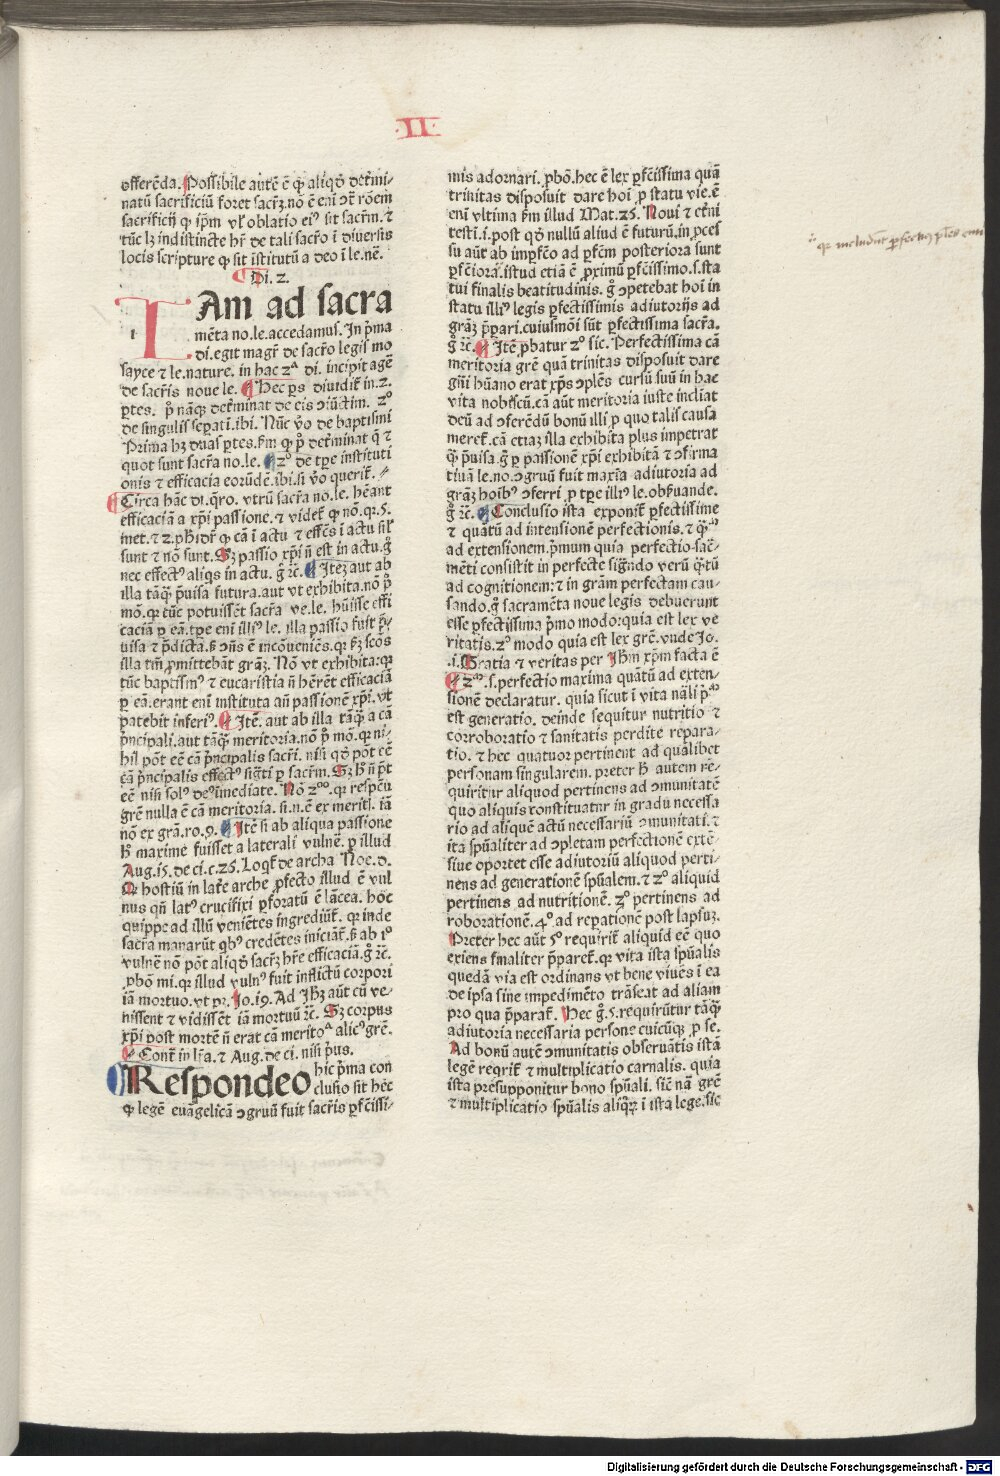 ·II·
offerēda. Possibile autē ē ꝙ aliqḋ determi-
natū sacrificiū foret sacrꝫ. nō ē eni ↄ̄ rōem
sacrificij ꝙ ip̄m vl' oblatio eiꝰ sit sacrm̄. ⁊
tūc lꝫ indistincte hr̄ de tali sacro ī diuersis
locis scripture ꝙ sit īstitutū a deo ī le. nē.
Di. 2.
IAm ad sacra
mēta no. le. accedamus. In p̄ma
di. egit magr̄ de sacro legis mo
sayce ⁊ le. nature. in hac 2ᵃ di. incipit agē
de sacris noue le. Hec ps diuidit̄ in. 2.
ptes. p̄ nāqꝫ determinat de eis ↄiūctim. 2º
de singulis sepatī. ibi. Nūc v̄o de baptismi
Prima hꝫ duas ptes. fm ꝙ p̄ determinat q̄ ⁊
quot sunt sacra no. le. 2º de tpe instituti
onis ⁊ efficacia eorūdē. ibi. si v̄o querit̄.
Circa hāc di. q̄ro. vtrū sacra no. le. hēant
efficaciā a xp̄i passione. ⁊ videt̄ ꝙ nō. qꝛ. 5.
met. ⁊ 2. phi. dr̄ ꝙ cā ī actu ⁊ effēs ī actu sil'
sunt ⁊ nō sunt. Sꝫ passio xp̄i n̄ est in actu. g̊
nec effectꝰ aliqs in actu. g̊ ⁊c. Itez aut ab
illa tāq̄ p̄uisa futura. aut vt exhibita. nō p̄
mō. qꝛ tūc potuissēt sacra ve. le. hūisse effi
caciā p eā. tpe eni illiꝰ le. illa passio fuit p̄-
uisa ⁊ p̄dicta. ß ↄn̄s ē incōueniēs. qꝛ fꝫ scōs
illa tm̄ ꝓmittebāt gr̄aꝫ. Nō vt exhibita: qꝛ
tūc baptismꝰ ⁊ eucaristia n̄ hērēt efficaciā
p eā. erant eni instituta añ passionē xp̄i. vt
patebit inferiꝰ. Itē. aut ab illa tāq̄ a cā
p̄ncipali. aut tāq̄ meritoria. nō p̄ mō. qꝛ ni-
hil pōt eē cā p̄ncipalis sacri. nisi qḋ pōt eē
cā p̄ncipalis effectꝰ sigti p sacrm̄. Sꝫ ħ n̄ pōt
eē nisi solꝰ deꝰ imediate. Nō 2º. qꝛ respcū
grē nulla ē cā meritoria. si. n. ē ex merit. iā
nō ex gr̄a. ro. 9. Itē si ab aliqua passione
ħ maxime fuisset a laterali vulnē. p illud
Aug. 15. de ci. c. 25. Loqt̄ de archa Noe. d.
Qꝛ hostiū in late arche ꝓfecto illud ē vul
nus qñ latꝰ crucifixi pforatū ē lācea. hoc
quippe ad illū veniētes ingrediūt̄. qꝛ inde
sacra manarūt qbꝰ credētes iniciāt̄. ß ab iº
vulnē nō pōt aliqḋ sacrꝫ hr̄e efficaciā. g̊ ⁊c.
pbō mi. qꝛ illud vulnꝰ fuit inflictū corpori
iā mortuo. vt pꝫ. Jo. 19. Ad Jhꝫ aūt cū ve-
nissent ⁊ vidissēt iā mortuū ⁊c. Sꝫ corpus
xp̄i post mortē n̄ erat cā meritoᵃ alicꝰ grē.
Cont̄ in lra. ⁊ Aug. de ci. nisi p̄us.
Respondeo hic p̄ma con
clusio sit hec
ꝙ legē euāgelicā ↄgruū fuit sacris pfcissi-
mis adornari. pbō. hec ē lex pfēissima quā
trinitas disposuit dare hoi p statu vie. ē
eni vltima fm illud Mat. 25. Noui ⁊ etni
testi. i. post qḋ nullū aliud ē futurū. in pces
su aūt ab impfēo ad pfēm posteriora sunt
pfēiora. istud etiā ē ꝓximū pfēissimo. s. sta
tui finalis beatitudinis. g̊ ↄpetebat hoi in
statu illiꝰ legis pfectissimis adiutorijs ad
gr̄aꝫ p̄pari. cuiusmōi sūt pfectissima sacra.
g̊ ⁊c. Itē pbatur 2º sic. Perfectissima cā
meritoria grē quā trinitas disposuit dare
gn̄i hūano erat xp̄s ↄplēs cursū suū in hac
vita nobiscū. cā aūt meritoria iuste inclīat
deū ad ↄferēdū bonū illi p quo talis causa
meret̄. cā etiaꝫ illa exhibita plus impetrat
q̄ p̄uisa. g̊ p passionē xp̄i exhibitā ⁊ ↄfirma
tiuā le. no. ↄgruū fuit maxīa adiutoria ad
gr̄aꝫ hoibꝰ ↄferri ꝓ tpe illiꝰ le. obfuande.
g̊ ⁊c. Conclusio ista exponit̄ pfectissime
⁊ quātū ad intensionē perfectionis. ⁊ qᵐ
ad extensionem. p̄mum quia perfectio sac̄-
mēti consistit in perfecte sign̄do verū q̄tū
ad cognitionem: ⁊ in gr̄am perfectam cau-
sando. g̊ sacramēta noue legis debuerunt
esse pfectissima p̄mo modo: quia est lex ve
ritatis. 2º modo quia est lex grē. vnde Jo.
.i. Gratia ⁊ veritas per Jhm̄ xp̄m facta ē
2º. s. perfectio maxima quātū ad exten-
sionē declaratur. quia sicut ī vita nāli p̄ᵒ
est generatio. deinde sequitur nutritio ⁊
corroboratio ⁊ sanitatis perdite repara-
tio. ⁊ hec quatuor pertinent ad quālibet
personam singularem. preter ħ autem re-
quiritur aliquod pertinens ad ↄmunitatē
quo aliquis constituatur in gradu necessa
rio ad aliquē actū necessariū ↄmunitati. ⁊
ita spūaliter ad ↄpletam perfectionē extē-
siue oportet esse adiutoriū aliquod perti-
nens ad generationē spūalem. ⁊ 2º aliquid
pertinens ad nutritionē. 3º pertinens ad
roborationē. 4º ad repationē post lapsuꝫ.
Preter hec aūt 5º requirit̄ aliquid eē quo
exiens finaliter p̄paret̄. qꝛ vita ista spūalis
quedā via est ordinans vt bene viuēs ī ea
de ipsa sine impedimēto trāseat ad aliam
pro qua p̄parat̄. Hec g̊. 5. requirūtur tāq̄
adiutoria necessaria persone cuicūqꝫ p se.
Ad bonū autē ↄmunitatis obseruātis istā
legē reqrit̄ ⁊ multiplicatio carnalis. quia
ista presupponitur bono spūali. sic̄ nā grē
⁊ multiplicatio spūalis aliqꝛꝫ ī ista lege. sic
Digitalisierung gefördert durch die Deutsche Forschungsgemeinschaft - DFG